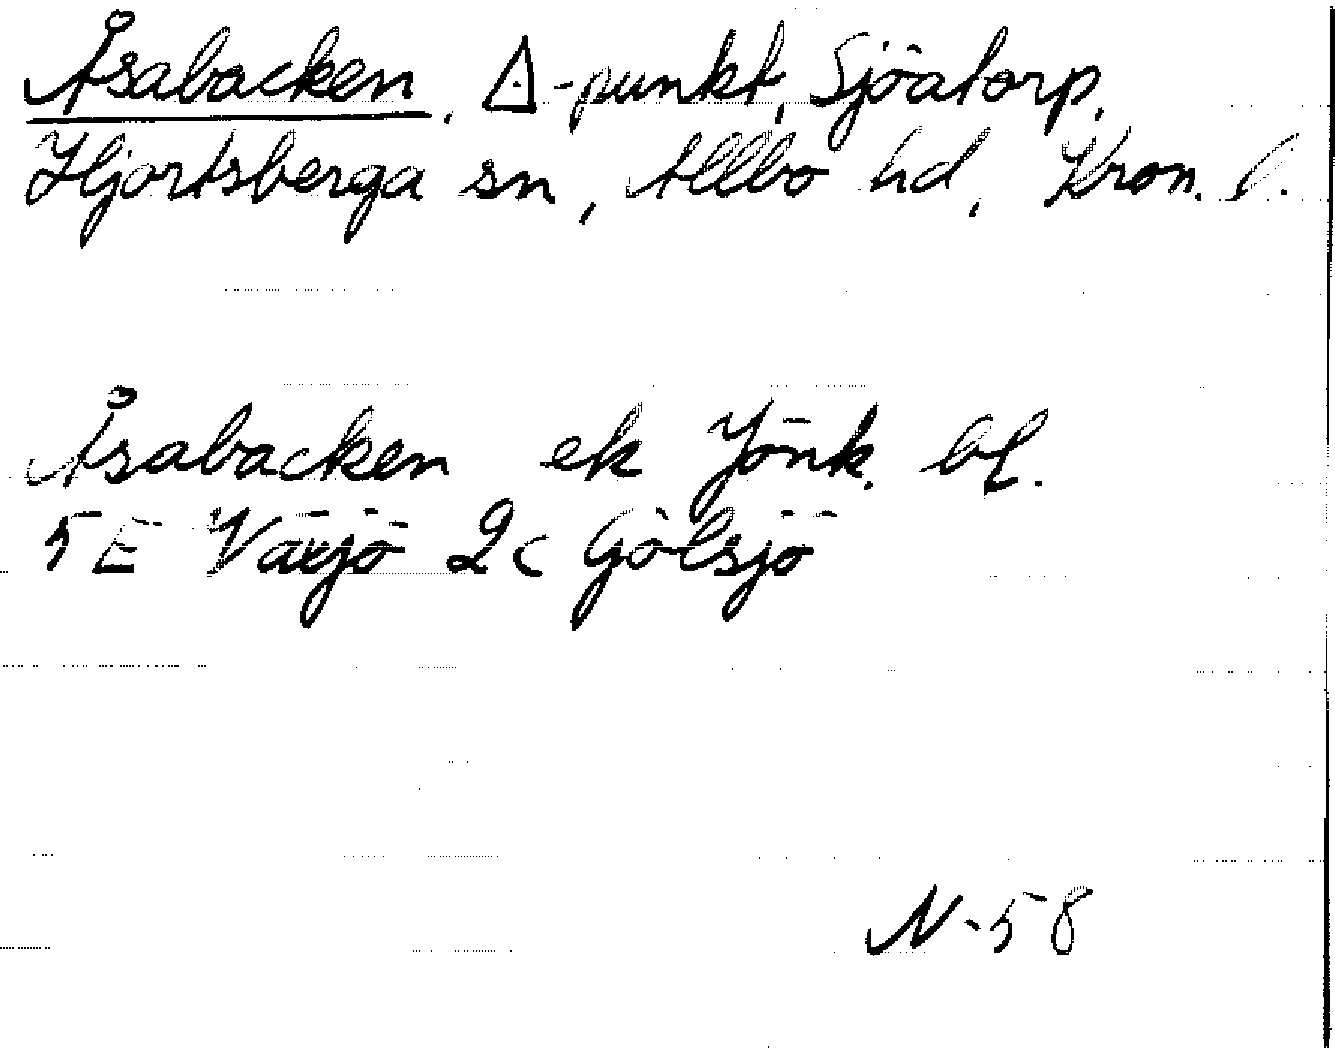 Åsabacken, △-punkt, Sjöatorp,
Hjortsberga sn, Allbo hd, Kron. l.
Åsabacken ek Jönk. bl.
5E Växjö 2c Gölsjö
N-58